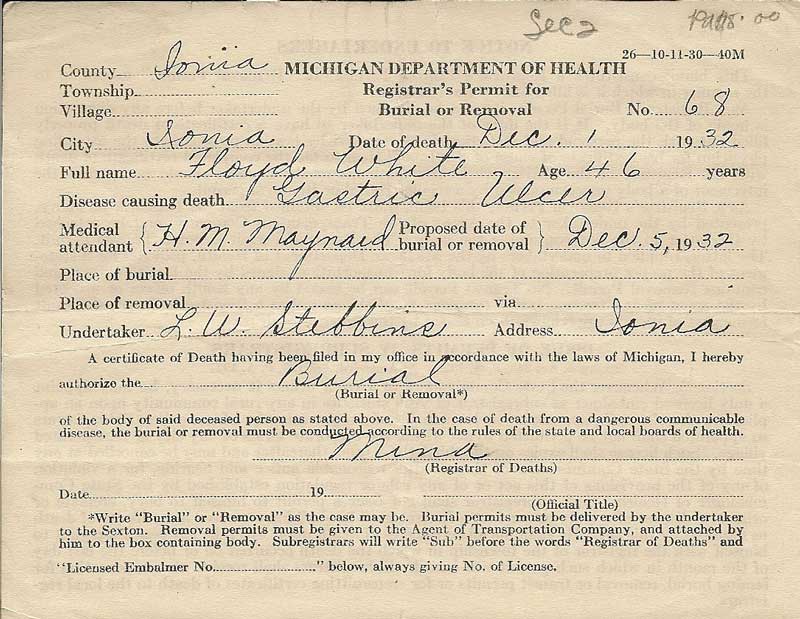 Sec 2
26—10-11-30—40M
County Ionia MICHIGAN DEPARTMENT OF HEALTH
Township Registrar's Permit for
Village Burial or Removal No. 68
City Ionia Date of death Dec. 1 1932
Full name Floyd White Age 46 years
Disease causing death Gastric Ulcer
Medical attendant { H. M. Maynard Proposed date of burial or removal } Dec. 5, 1932
Place of burial
Place of removal via
Undertaker L. W. Stebbins Address Ionia
A certificate of Death having been filed in my office in accordance with the laws of Michigan, I hereby
authorize the Burial
(Burial or Removal*)
of the body of said deceased person as stated above. In the case of death from a dangerous communicable
disease, the burial or removal must be conducted according to the rules of the state and local boards of health.
Mina
(Registrar of Deaths)
Date 19
(Official Title)
*Write "Burial" or "Removal" as the case may be. Burial permits must be delivered by the undertaker
to the Sexton. Removal permits must be given to the Agent of Transportation Company, and attached by
him to the box containing body. Subregistrars will write "Sub" before the words "Registrar of Deaths" and
"Licensed Embalmer No." below, always giving No. of License.